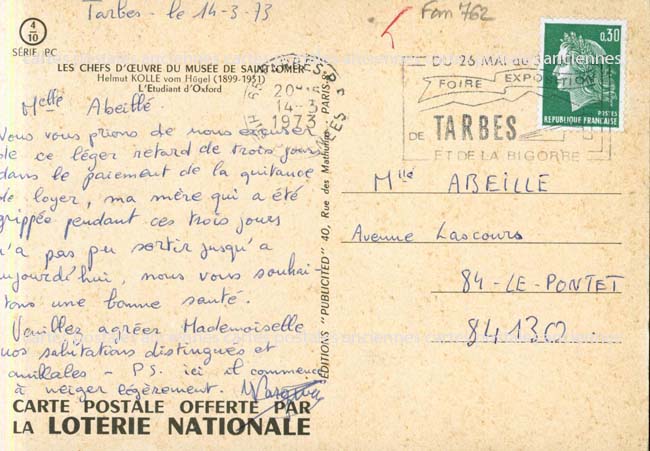 Tarbes - le 14-3-73
Fam 762
4
10
SÉRIE PC
LES CHEFS D'ŒUVRE DU MUSÉE DE SAINT-OMER
Helmut KOLLE vom Hügel (1899-1931)
L'Etudiant d'Oxford
Melle Abeille.
Nous vous prions de nous excuser
de ce léger retard de trois jours
dans le paiement de la quitance
de loyer, ma mère qui a été
grippée pendant ces trois jours
n'a pas pu sortir jusqu'a
aujourd'hui, nous vous souhai-
tons une bonne santé.
Veuillez agréer Mademoiselle
nos salutations distingués et
amicales - P.S. ici il commence
à neiger légèrement.
CARTE POSTALE OFFERTE PAR
LA LOTERIE NATIONALE
ÉDITIONS "PUBLICITED" 40, Rue des Mathurins PARIS-8e
14-3
1973
DU 26 MAI au 3
FOIRE EXPOSITION
DE TARBES
ET DE LA BIGORRE
0,30
POSTES
REPUBLIQUE FRANÇAISE
Mlle ABEILLE
Avenue Lascours
84-LE-PONTET
84130
cartes postales anciennes